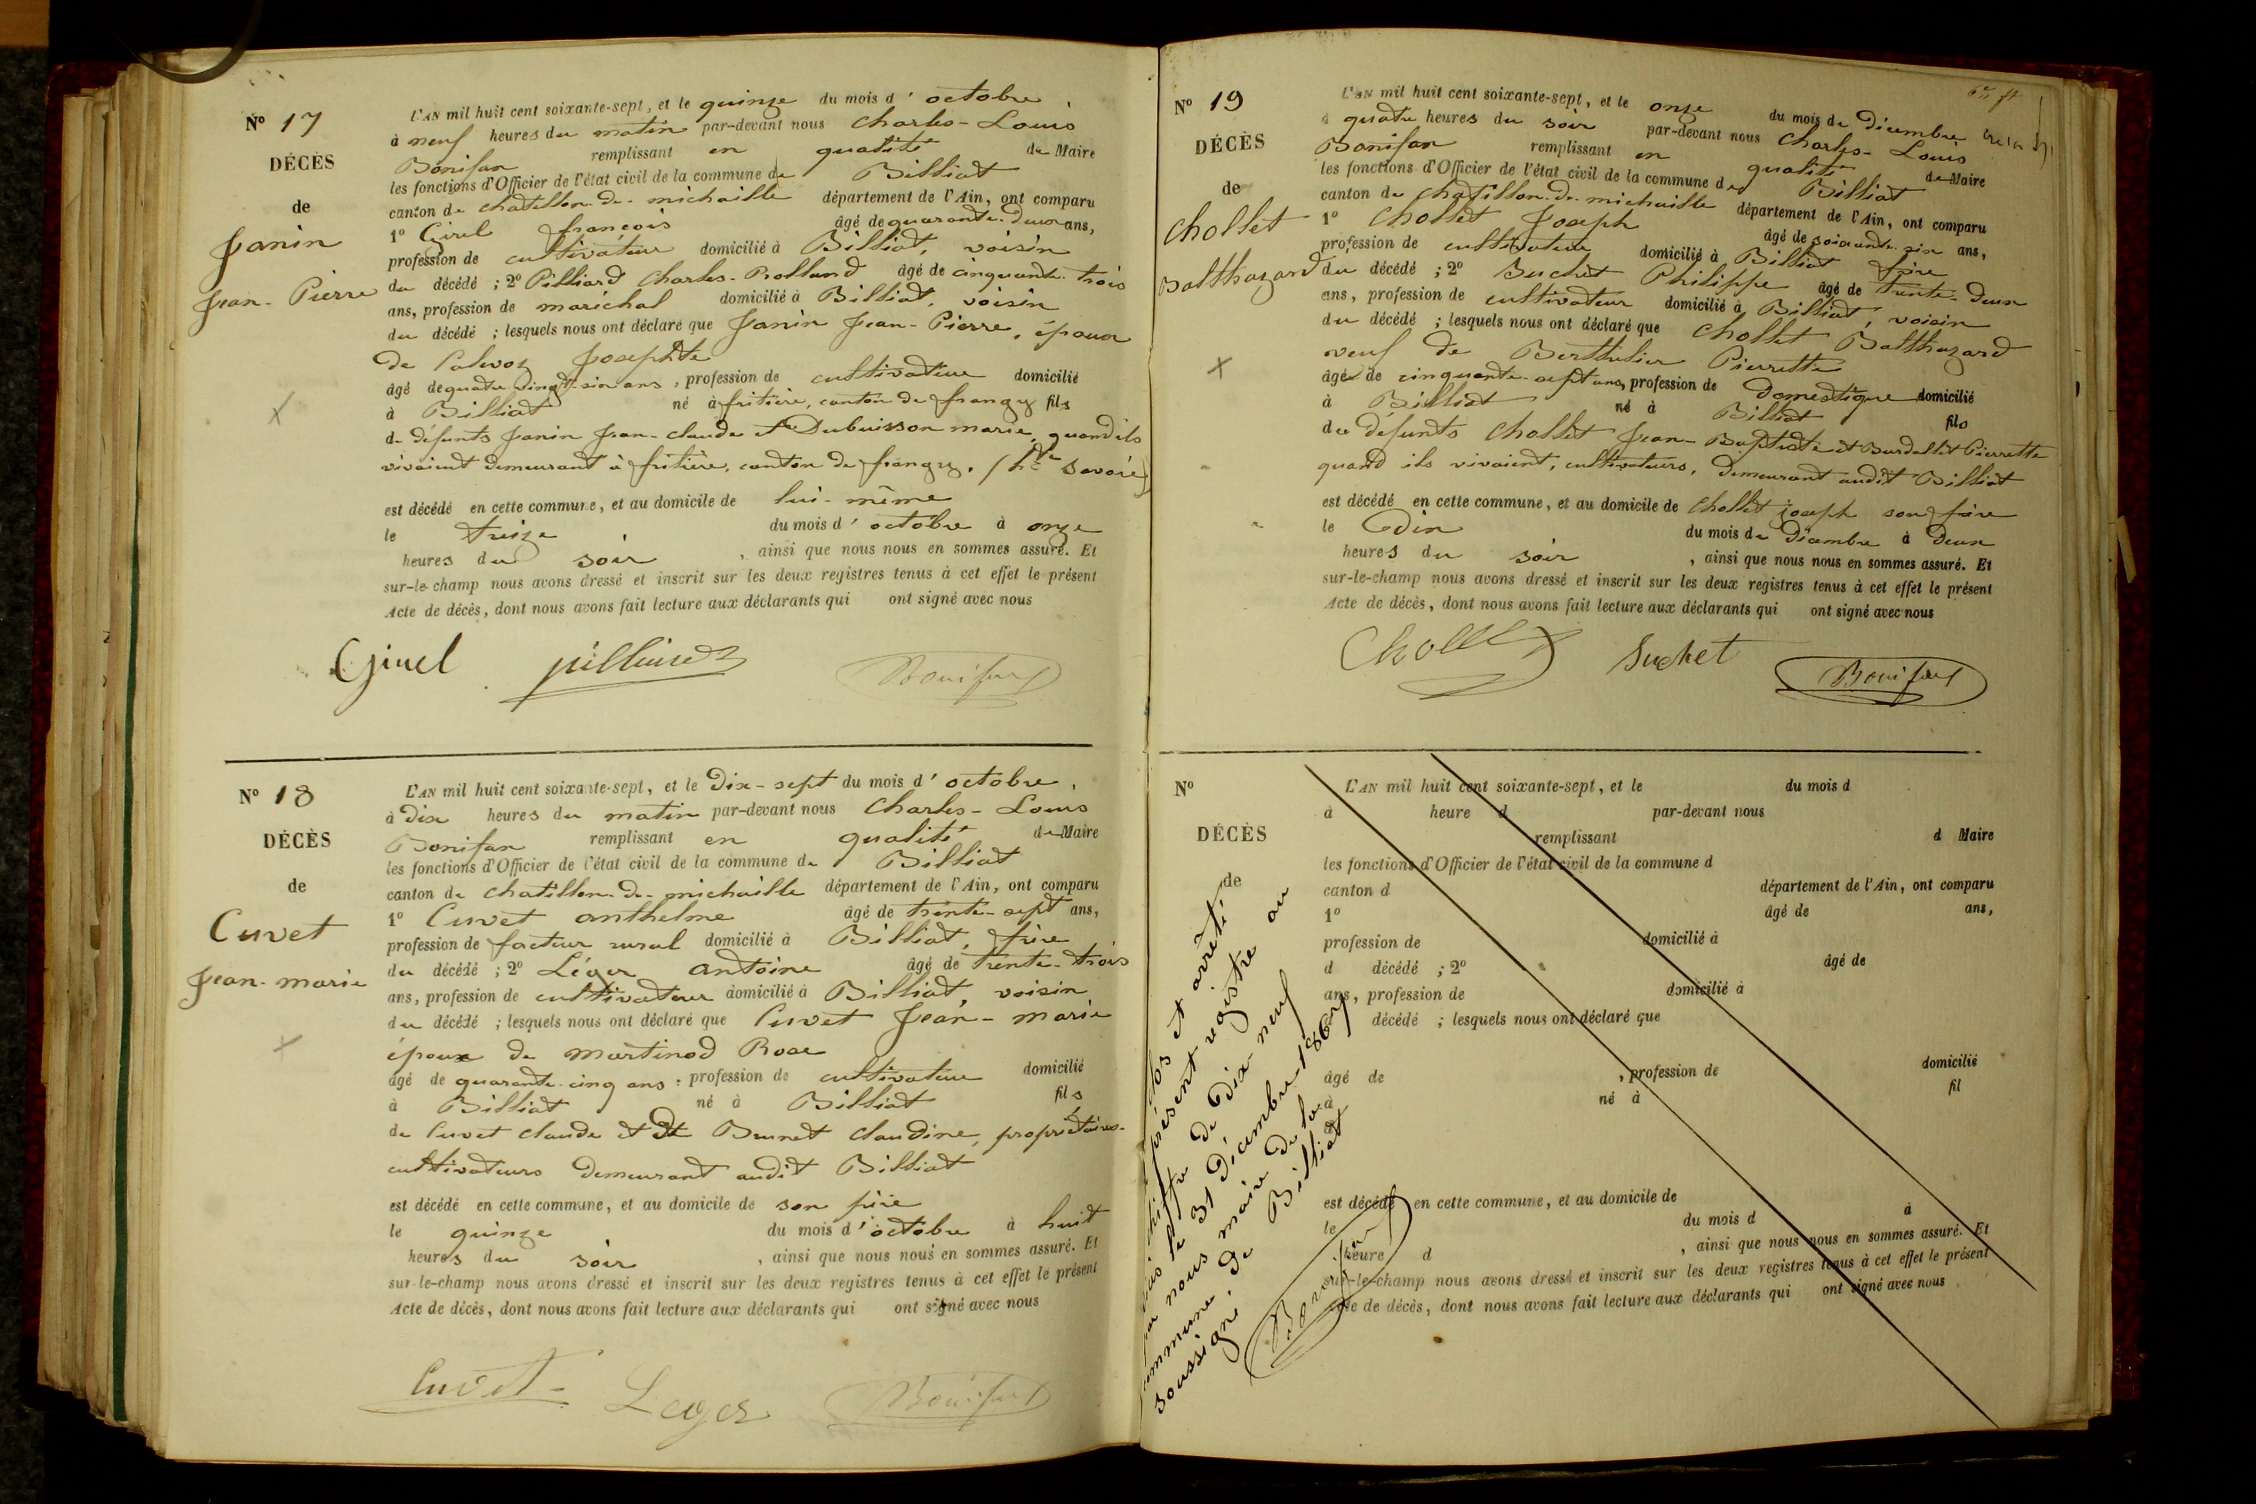 N° 17
DÉCÈS
de
Janin
Jean-Pierre
L'AN mil huit cent soixante-sept, et le quinze du mois d'octobre,
à neuf heures du matin par-devant nous Charles-Louis
Bonifax remplissant en qualité de Maire
les fonctions d'Officier de l'état civil de la commune de Billiat
canton de chatillon-de-michaille département de l'Ain, ont comparu
1° Girel françois âgé de quarante-deux ans,
profession de cultivateur domicilié à Billiat, voisin
du décédé ; 2° Pilliard Charles-Rolland âgé de cinquante-trois
ans, profession de maréchal domicilié à Billiat, voisin
du décédé ; lesquels nous ont déclaré que Janin Jean-Pierre, époux
de Josephte
âgé de quatre vingt-six ans, profession de cultivateur domicilié
à Billiat né à fritière, canton de frangy fils
de défunts Janin Jean-claude et Dubuisson marie, quand ils
vivaient demeurant à fritière, canton de frangy. (hte Savoie)
est décédé en cette commune, et au domicile de lui-même
le treize du mois d'octobre à onze
heures du soir, ainsi que nous nous en sommes assuré. Et
sur-le-champ nous avons dressé et inscrit sur les deux registres tenus à cet effet le présent
Acte de décès, dont nous avons fait lecture aux déclarants qui ont signé avec nous
Girel pilliard Bonifax
N° 18
DÉCÈS
de
Cuvet
Jean-marie
L'AN mil huit cent soixante-sept, et le Dix-sept du mois d'octobre,
à Dix heures du matin par-devant nous Charles-Louis
Bonifax remplissant en qualité de Maire
les fonctions d'Officier de l'état civil de la commune de Billiat
canton de chatillon-de-michaille département de l'Ain, ont comparu
1° Cuvet anthelme âgé de trente-sept ans,
profession de facteur rural domicilié à Billiat, frère
du décédé ; 2° Léger antoine âgé de trente-trois
ans, profession de cultivateur domicilié à Billiat, voisin
du décédé ; lesquels nous ont déclaré que Cuvet Jean-marie
époux de martinod Rose
âgé de quarante-cinq ans, profession de cultivateur domicilié
à Billiat né à Billiat fils
de Cuvet claude et de Brunet claudine, propriétaires-
cultivateurs demeurant audit Billiat
est décédé en cette commune, et au domicile de son père
le quinze du mois d'octobre à huit
heures du soir, ainsi que nous nous en sommes assuré. Et
sur-le-champ nous avons dressé et inscrit sur les deux registres tenus à cet effet le présent
Acte de décès, dont nous avons fait lecture aux déclarants qui ont signé avec nous
Cuvet Leger Bonifax
N° 19
DÉCÈS
de
Chollet
Balthazard
L'AN mil huit cent soixante-sept, et le onze du mois de Décembre
à quatre heures du soir par-devant nous Charles-Louis
Bonifax remplissant en qualité de Maire
les fonctions d'Officier de l'état civil de la commune de Billiat
canton de chatillon-de-michaille département de l'Ain, ont comparu
1° Chollet Joseph âgé de soixante-six ans,
profession de cultivateur domicilié à Billiat frère
du décédé ; 2° Suchet Philippe âgé de trente-deux
ans, profession de cultivateur domicilié à Billiat, voisin
du décédé ; lesquels nous ont déclaré que Chollet Balthazard
veuf de Berthelier Pierrette
âgé de cinquante-sept ans, profession de Domestique domicilié
à Billiat né à Billiat fils
de défunts Chollet Jean-Baptiste et Burdallet Pierrette
quand ils vivaient, cultivateurs, demeurant audit Billiat
est décédé en cette commune, et au domicile de Chollet joseph son frère
le Dix du mois de Décembre à Deux
heures du soir, ainsi que nous nous en sommes assuré. Et
sur-le-champ nous avons dressé et inscrit sur les deux registres tenus à cet effet le présent
Acte de décès, dont nous avons fait lecture aux déclarants qui ont signé avec nous
Chollet Suchet Bonifax
N°
DÉCÈS
de
L'AN mil huit cent soixante-sept, et le du mois d
à heure d par-devant nous
remplissant d Maire
les fonctions d'Officier de l'état civil de la commune d
canton d département de l'Ain, ont comparu
1° âgé de ans,
profession de domicilié à
d décédé ; 2° âgé de
ans, profession de domicilié à
décédé ; lesquels nous ont déclaré que
âgé de , profession de domicilié
à né à fil
d
est décédé en cette commune, et au domicile de
le du mois d à
heure d , ainsi que nous nous en sommes assuré. Et
sur-le-champ nous avons dressé et inscrit sur les deux registres tenus à cet effet le présent
Acte de décès, dont nous avons fait lecture aux déclarants qui ont signé avec nous
clos et arrêté
présent registre au
chiffre de Dix-neuf
le 31 Décembre 1867
par nous maire de la
commune de Billiat
soussigné.
Bonifax